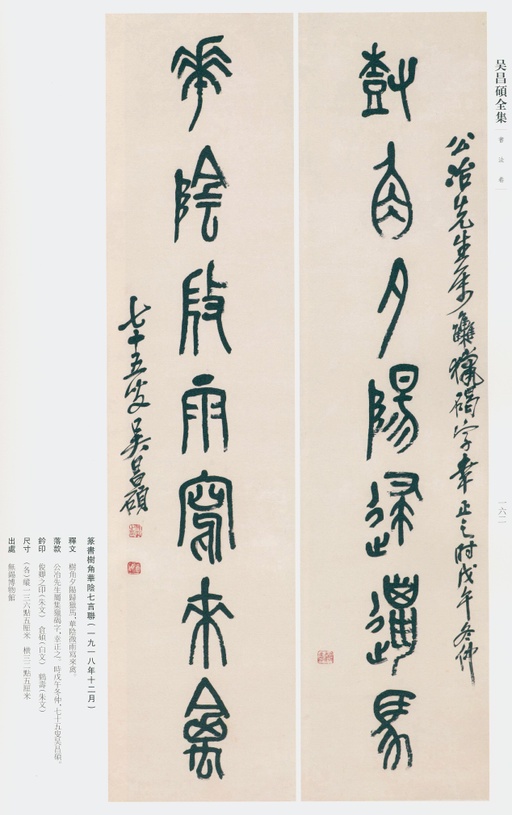 吴昌碩全集
書法卷
一六二
公冶先生屬 集獵碣字 幸正之 時戊午冬仲
樹角夕陽歸獵馬
華陰微雨寫來禽
七十五叟吳昌碩
篆書樹角華陰七言聯(一九一八年十二月)
釋文 樹角夕陽歸獵馬,華陰微雨寫來禽。
落款 公冶先生屬集獵碣字,幸正之。時戊午冬仲,七十五叟吳昌碩。
鈐印 俊卿之印(朱文) 倉碩(白文) 鶴壽(朱文)
尺寸 (各)縱一三六點五厘米 橫三二點五厘米
出處 無錫博物館